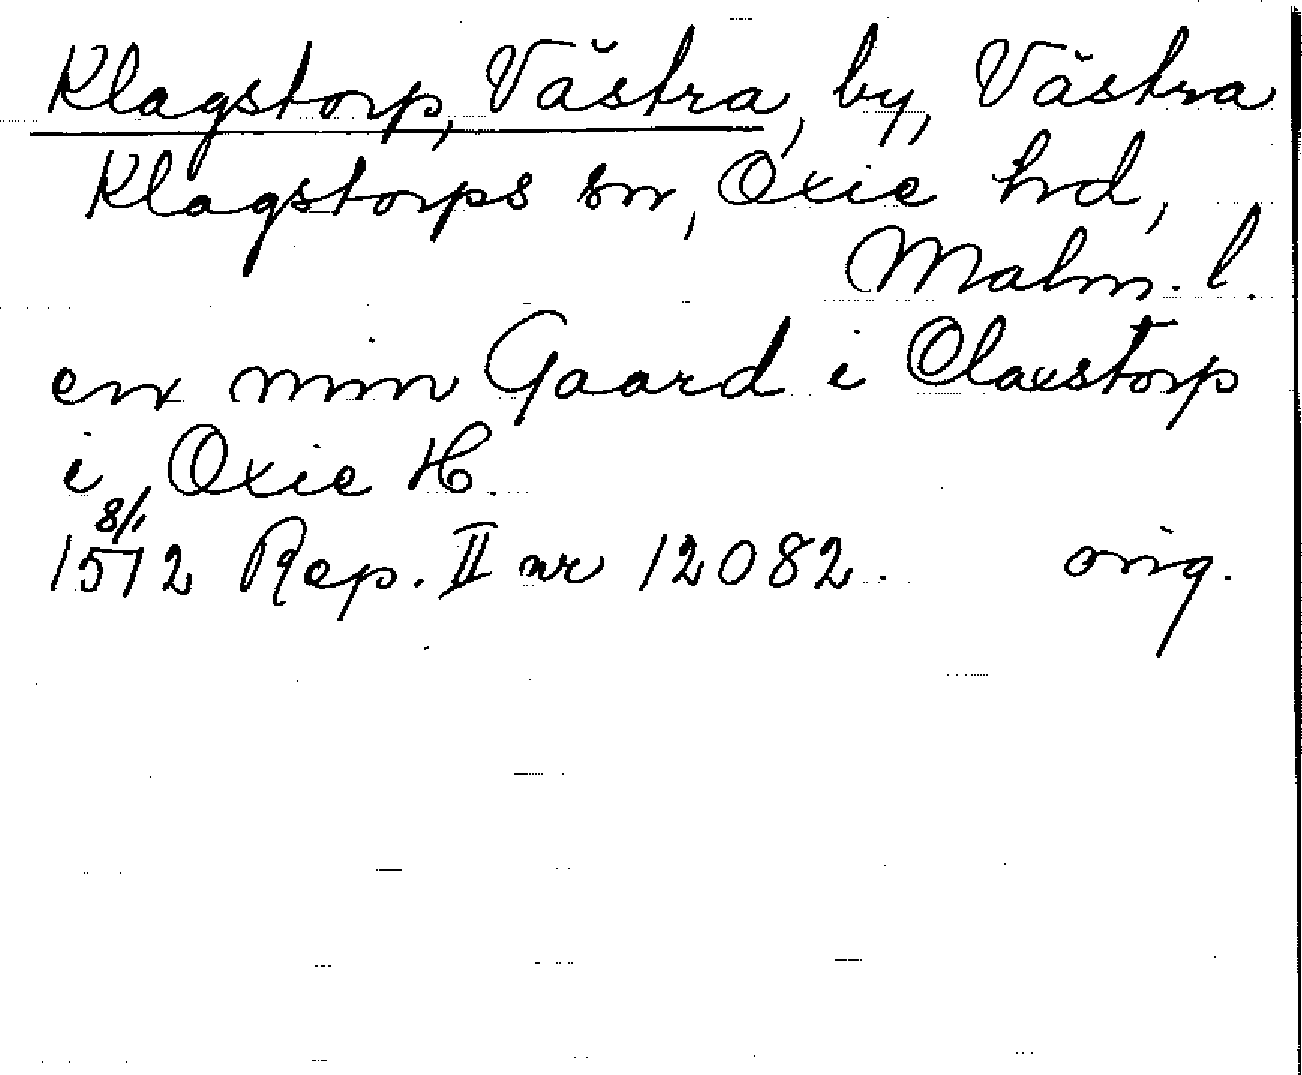 Klagstorp, Västra, by, Västra
Klagstorps sn, Oxie hrd,
Malm. l.
en min Gaard i Claustorp
i Oxie H.
8/1
1572 Rep. II nr 12082. orig.